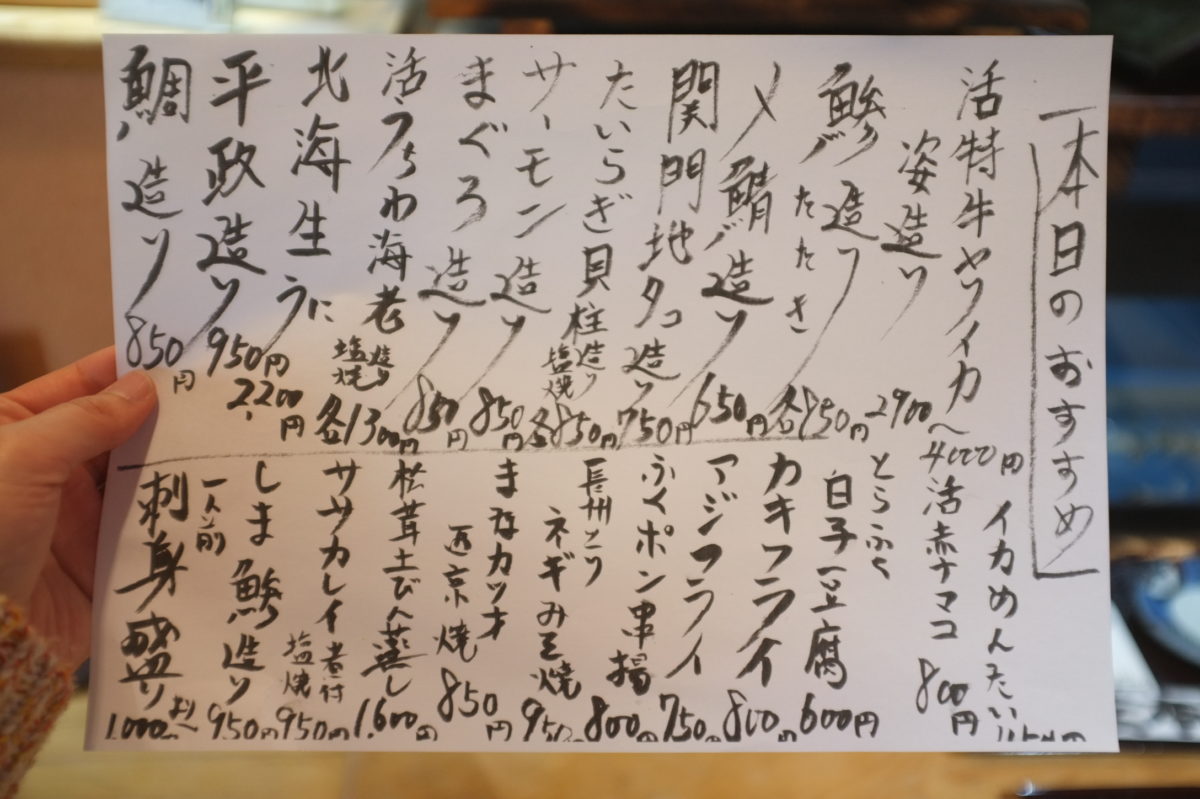 本日のおすすめ
活特牛ヤリイカ
姿造り 2900〜4000円
鯵造り
たたき 各850円
〆鯖造り 650円
関門地タコ造り 750円
たいらぎ貝柱 造り 塩焼 各850円
サーモン造り 850円
まぐろ造り 850円
活うちわ海老 造り 塩焼 各1300円
北海生うに 2,200円
平政造り 950円
鯛造り 850円
イカめんたい
活赤ナマコ 800円
とらふく
白子豆腐 600円
カキフライ 800円
アジフライ 750円
ふくポン串揚 800円
長州とり
ネギみそ焼 950円
まなカツオ
西京焼 850円
松茸土びん蒸し 1,600円
サザカレイ 煮付 塩焼 950円
しま鯵造り 950円
一人前
刺身盛り 1,000円より